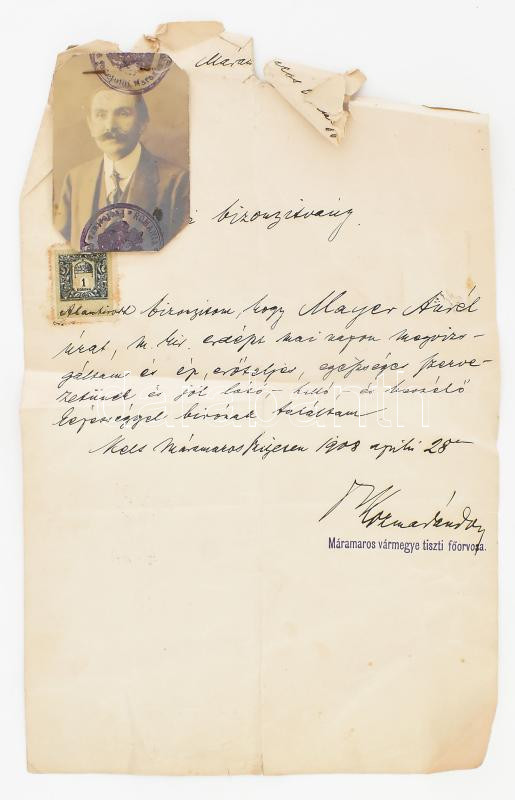 Mára
bizonyitvány.
1
Alantirott bizonyitom, hogy Mayer Aurél
urat, m. kir. erdészt mai napon megvizs-
gáltam és ép, erőteljes, egészséges szerve-
zetünek és jól látó- halló, és beszélő
képességgel birónak találtam
Kelt Máramaros Szigeten 1908 április 28
Máramaros vármegye tiszti főorvosa.